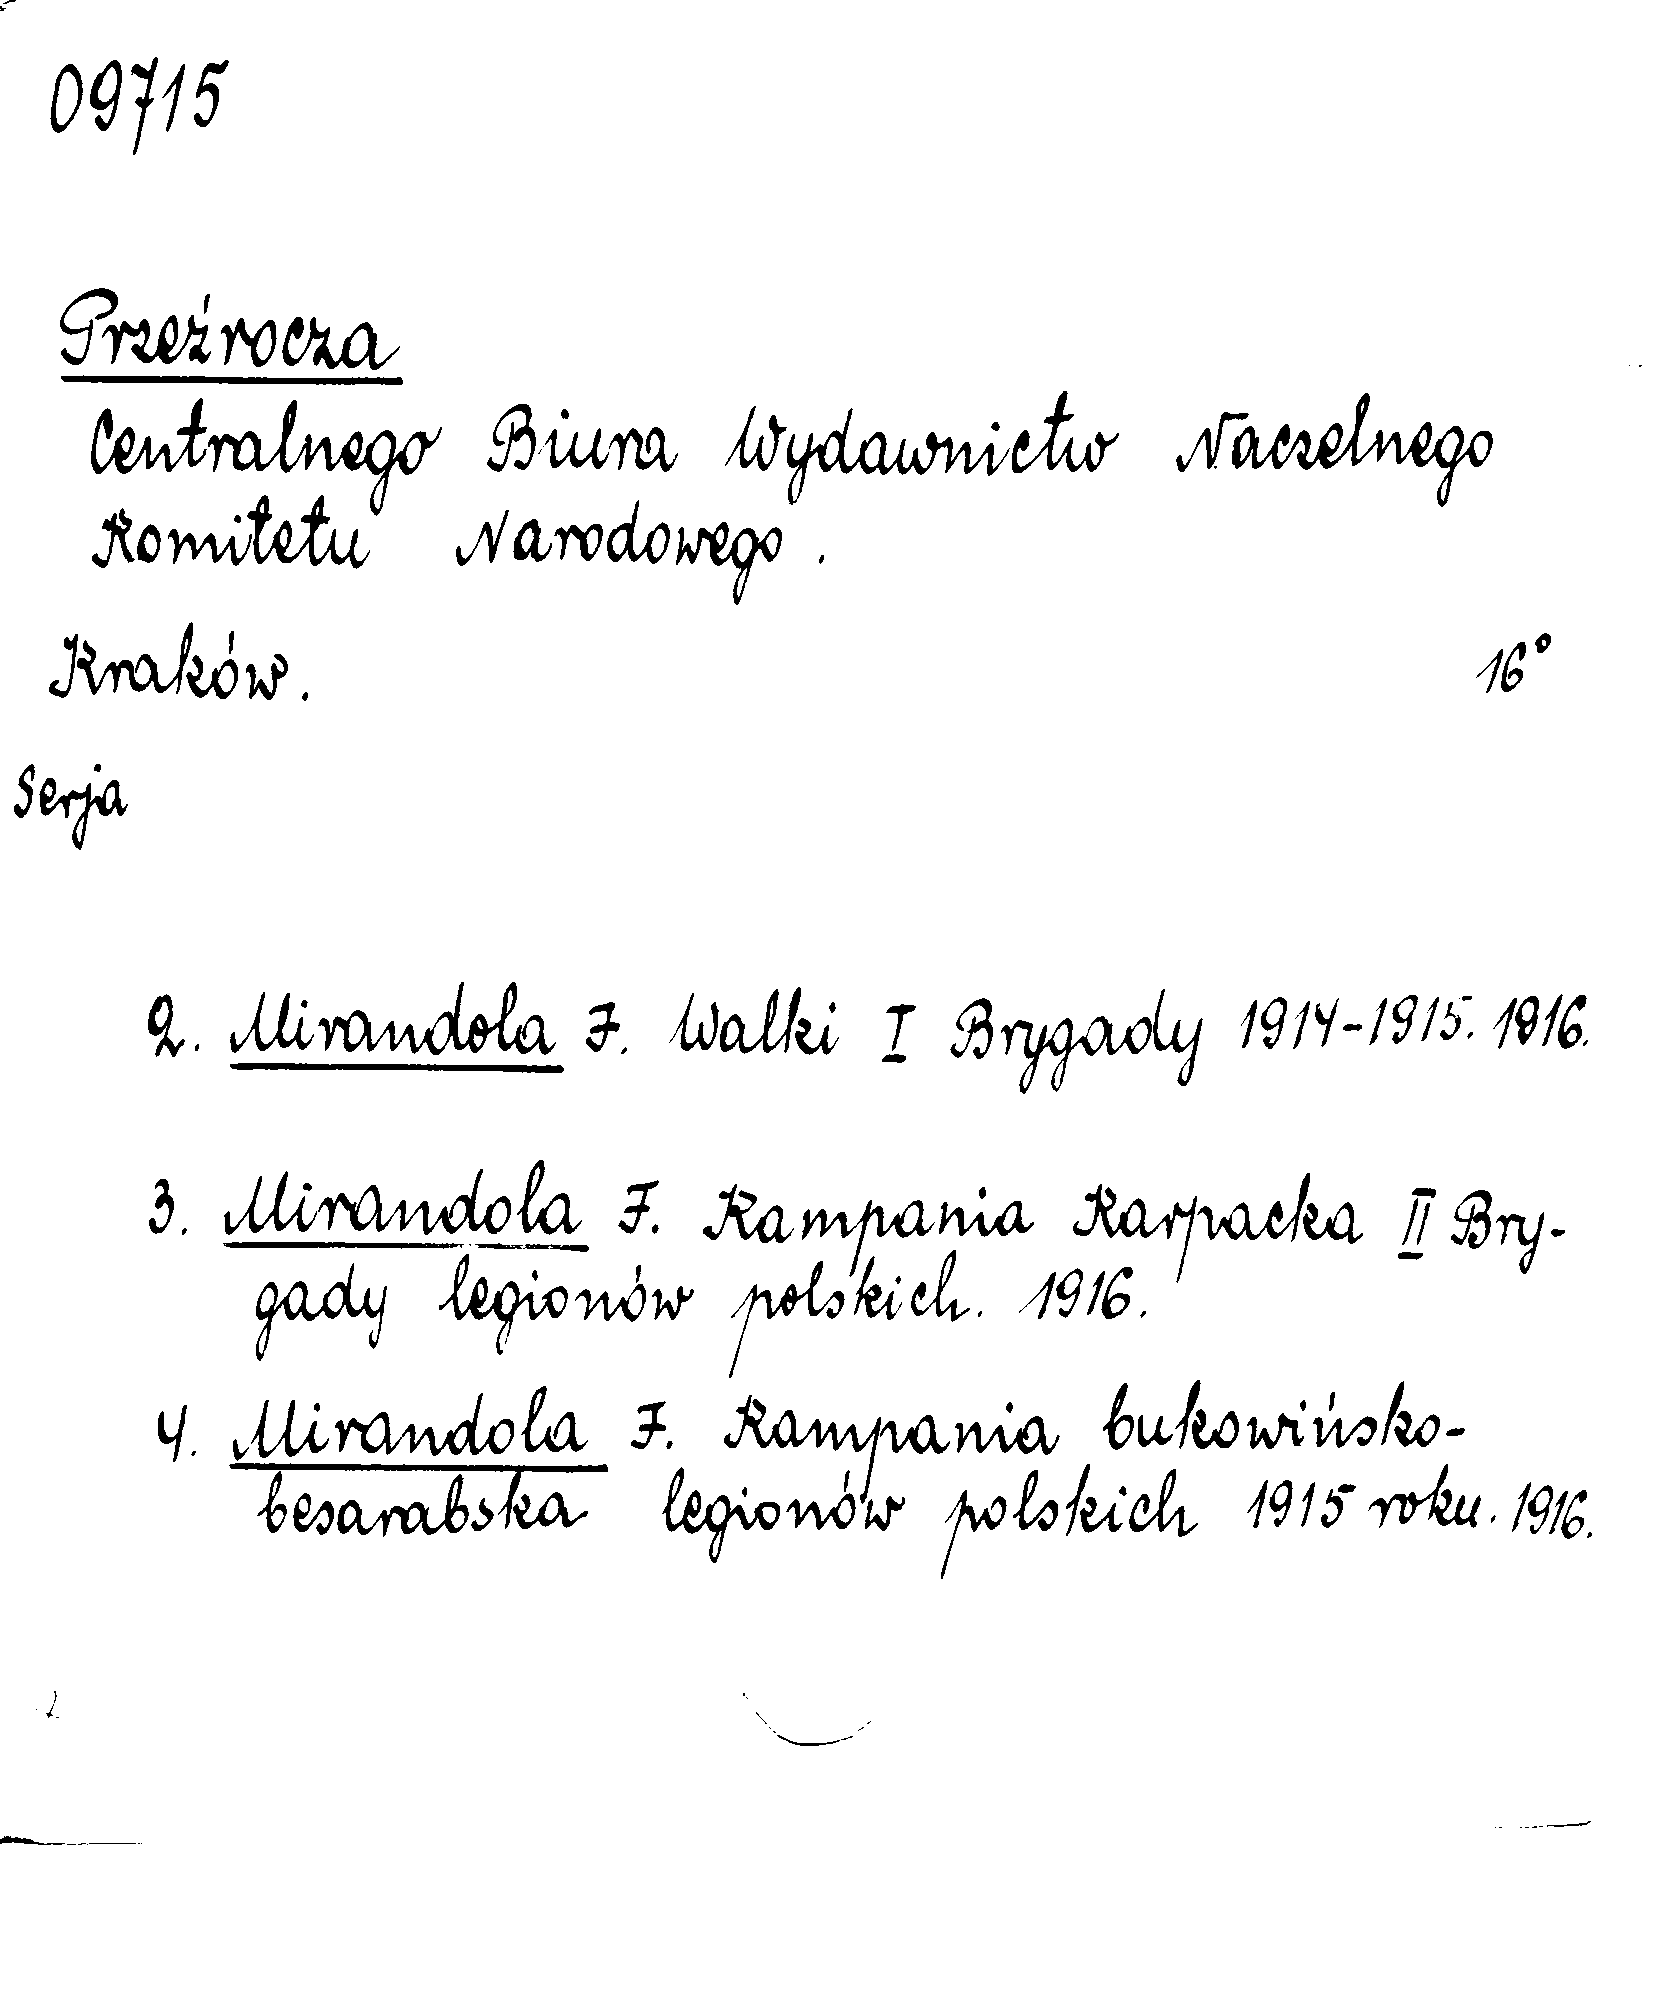 09715
Przeźrocza
Centralnego Biura Wydawnictw Naczelnego
Komitetu Narodowego.
Kraków. 16°
Serja
2. Mirandola F. Walki I Brygady 1914-1915. 1916.
3. Mirandola F. Kampania Karpacka II Bry-
gady legionów polskich. 1916.
4. Mirandola F. Kampania bukowińsko-
besarabska legionów polskich 1915 roku. 1916.